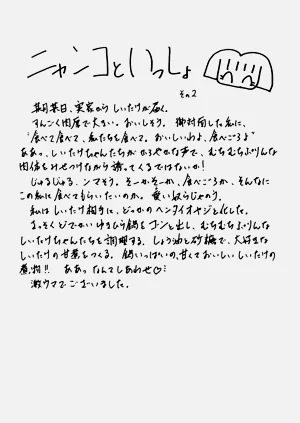 ニャンコといっしょ
その2
某月某日、実家から しいたけが届く。
すんごく肉厚で大きい。おいしそう。 御対面した私に、
"食べて食べて、私たちを食べて。おいしいわよ、食べごろよ"
ああっ、しいたけちゃんたちが かろやかな声で、むちむちぷりんな
肉体をみせつけながら誘ってくるではないか!
じゅるじゅる、ンマそう。そーかそーか、食べごろか、そんなに
この私に食べてもらいたいのか。愛い奴らじゃのう。
私は しいたけ相手に、どっかの ヘンタイオヤジと化した。
まっそく どでかい ゆきひら鍋を ゴンと出し、むちむちぷりんな
しいたけちゃんたちを調理する。しょう油と砂糖で、大好きな
しいたけの甘煮をつくる。 鍋いっぱいの、甘くておいしい しいたけの
煮物!! ああっ なんてしあわせ♡
激ウマでございました。